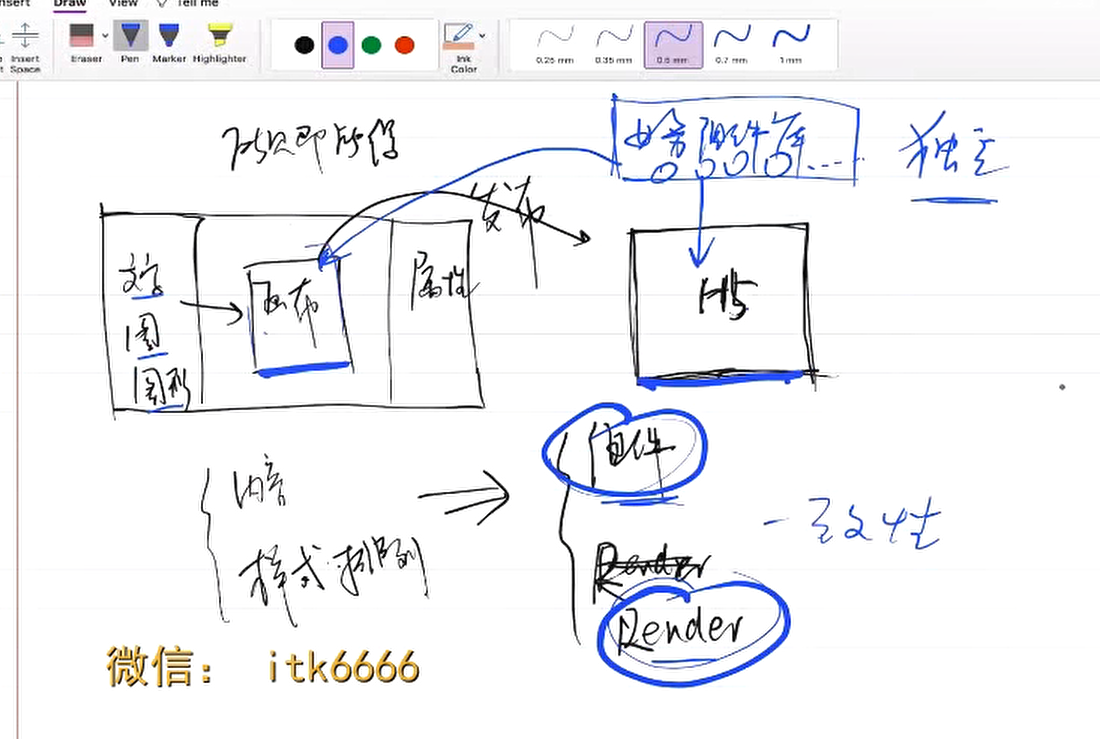 Insert
Draw
View
Tell me
Insert Space
Eraser
Pen
Marker
Highlighter
Ink Color
0.25 mm
0.35 mm
0.5 mm
0.7 mm
1 mm
所见即所得
业务组件库....
独立
发布
文字
图
图形
画布
属性
H5
组件
内容
样式·排列
一致性
Render
Render
微信： itk6666